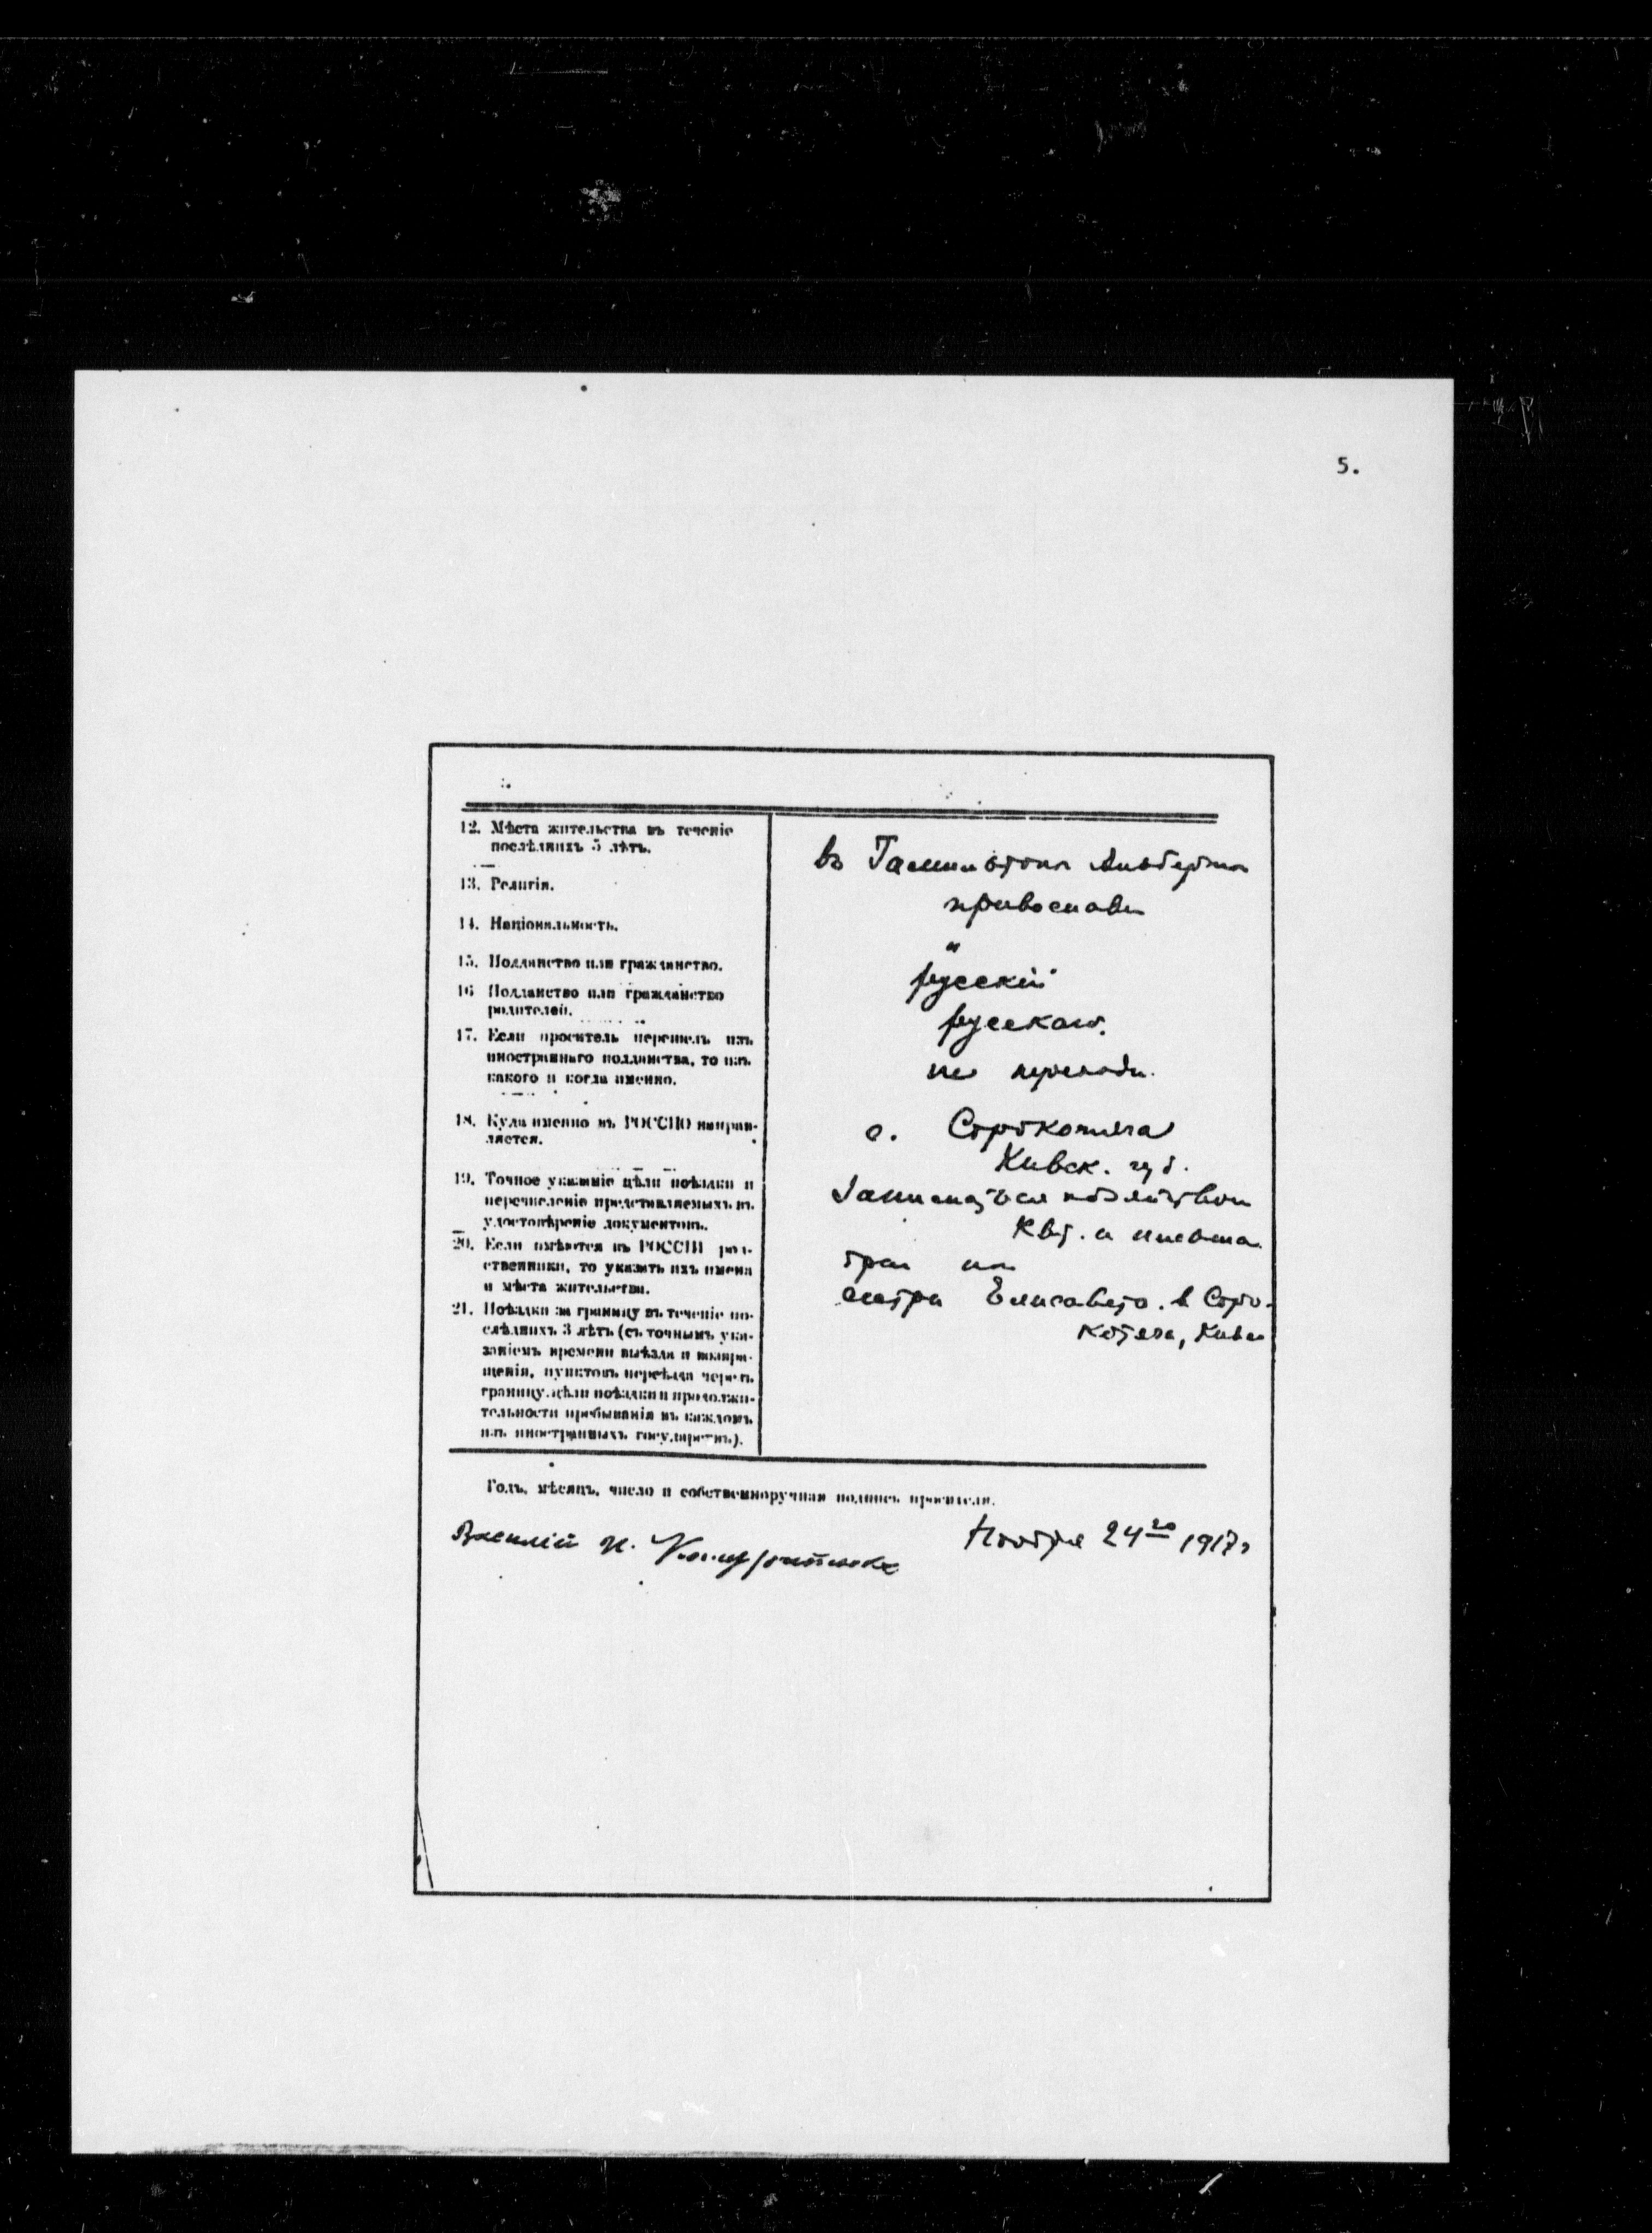 5.
12. Мѣста жительства въ теченіе
послѣднихъ 5 лѣтъ.
въ Альберта
13. Религія.
православн
14. Національность.
"
15. Подданство или гражданство.
русскій
16 Подданство или гражданство
родителей.
русскаго.
17. Если проситель перешелъ изъ
иностраннаго подданства, то изъ
какого и когда именно.
не переходи.
18. Куда именно въ РОССІЮ направ-
ляется.
с. Сорокотяга
Киевск. губ.
19. Точное указаніе цѣли поѣздки и
перечисленіе представляемыхъ въ
удостовѣреніе документовъ.
хозяйством
Квт. и письма
20. Если имѣются въ РОССІИ род-
ственники, то указать ихъ имена
и мѣста жительства.
сестра Елисавета. в Соро-
котяга, Киевс
21. Поѣздки за границу въ теченіе по-
слѣднихъ 3 лѣтъ (съ точнымъ ука-
заніемъ времени выѣзда и возвра-
щенія, пунктовъ переѣзда черезъ
границу, цѣли поѣздки и продолжи-
тельности пребыванія въ каждомъ
изъ иностранныхъ государствъ).
Годъ, мѣсяцъ, число и собственноручная подпись просителя.
Василій И. Ноября 24го 1917г